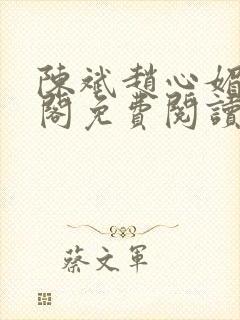 陳斌趙心媚
閣免費閱讀
蔡文軍